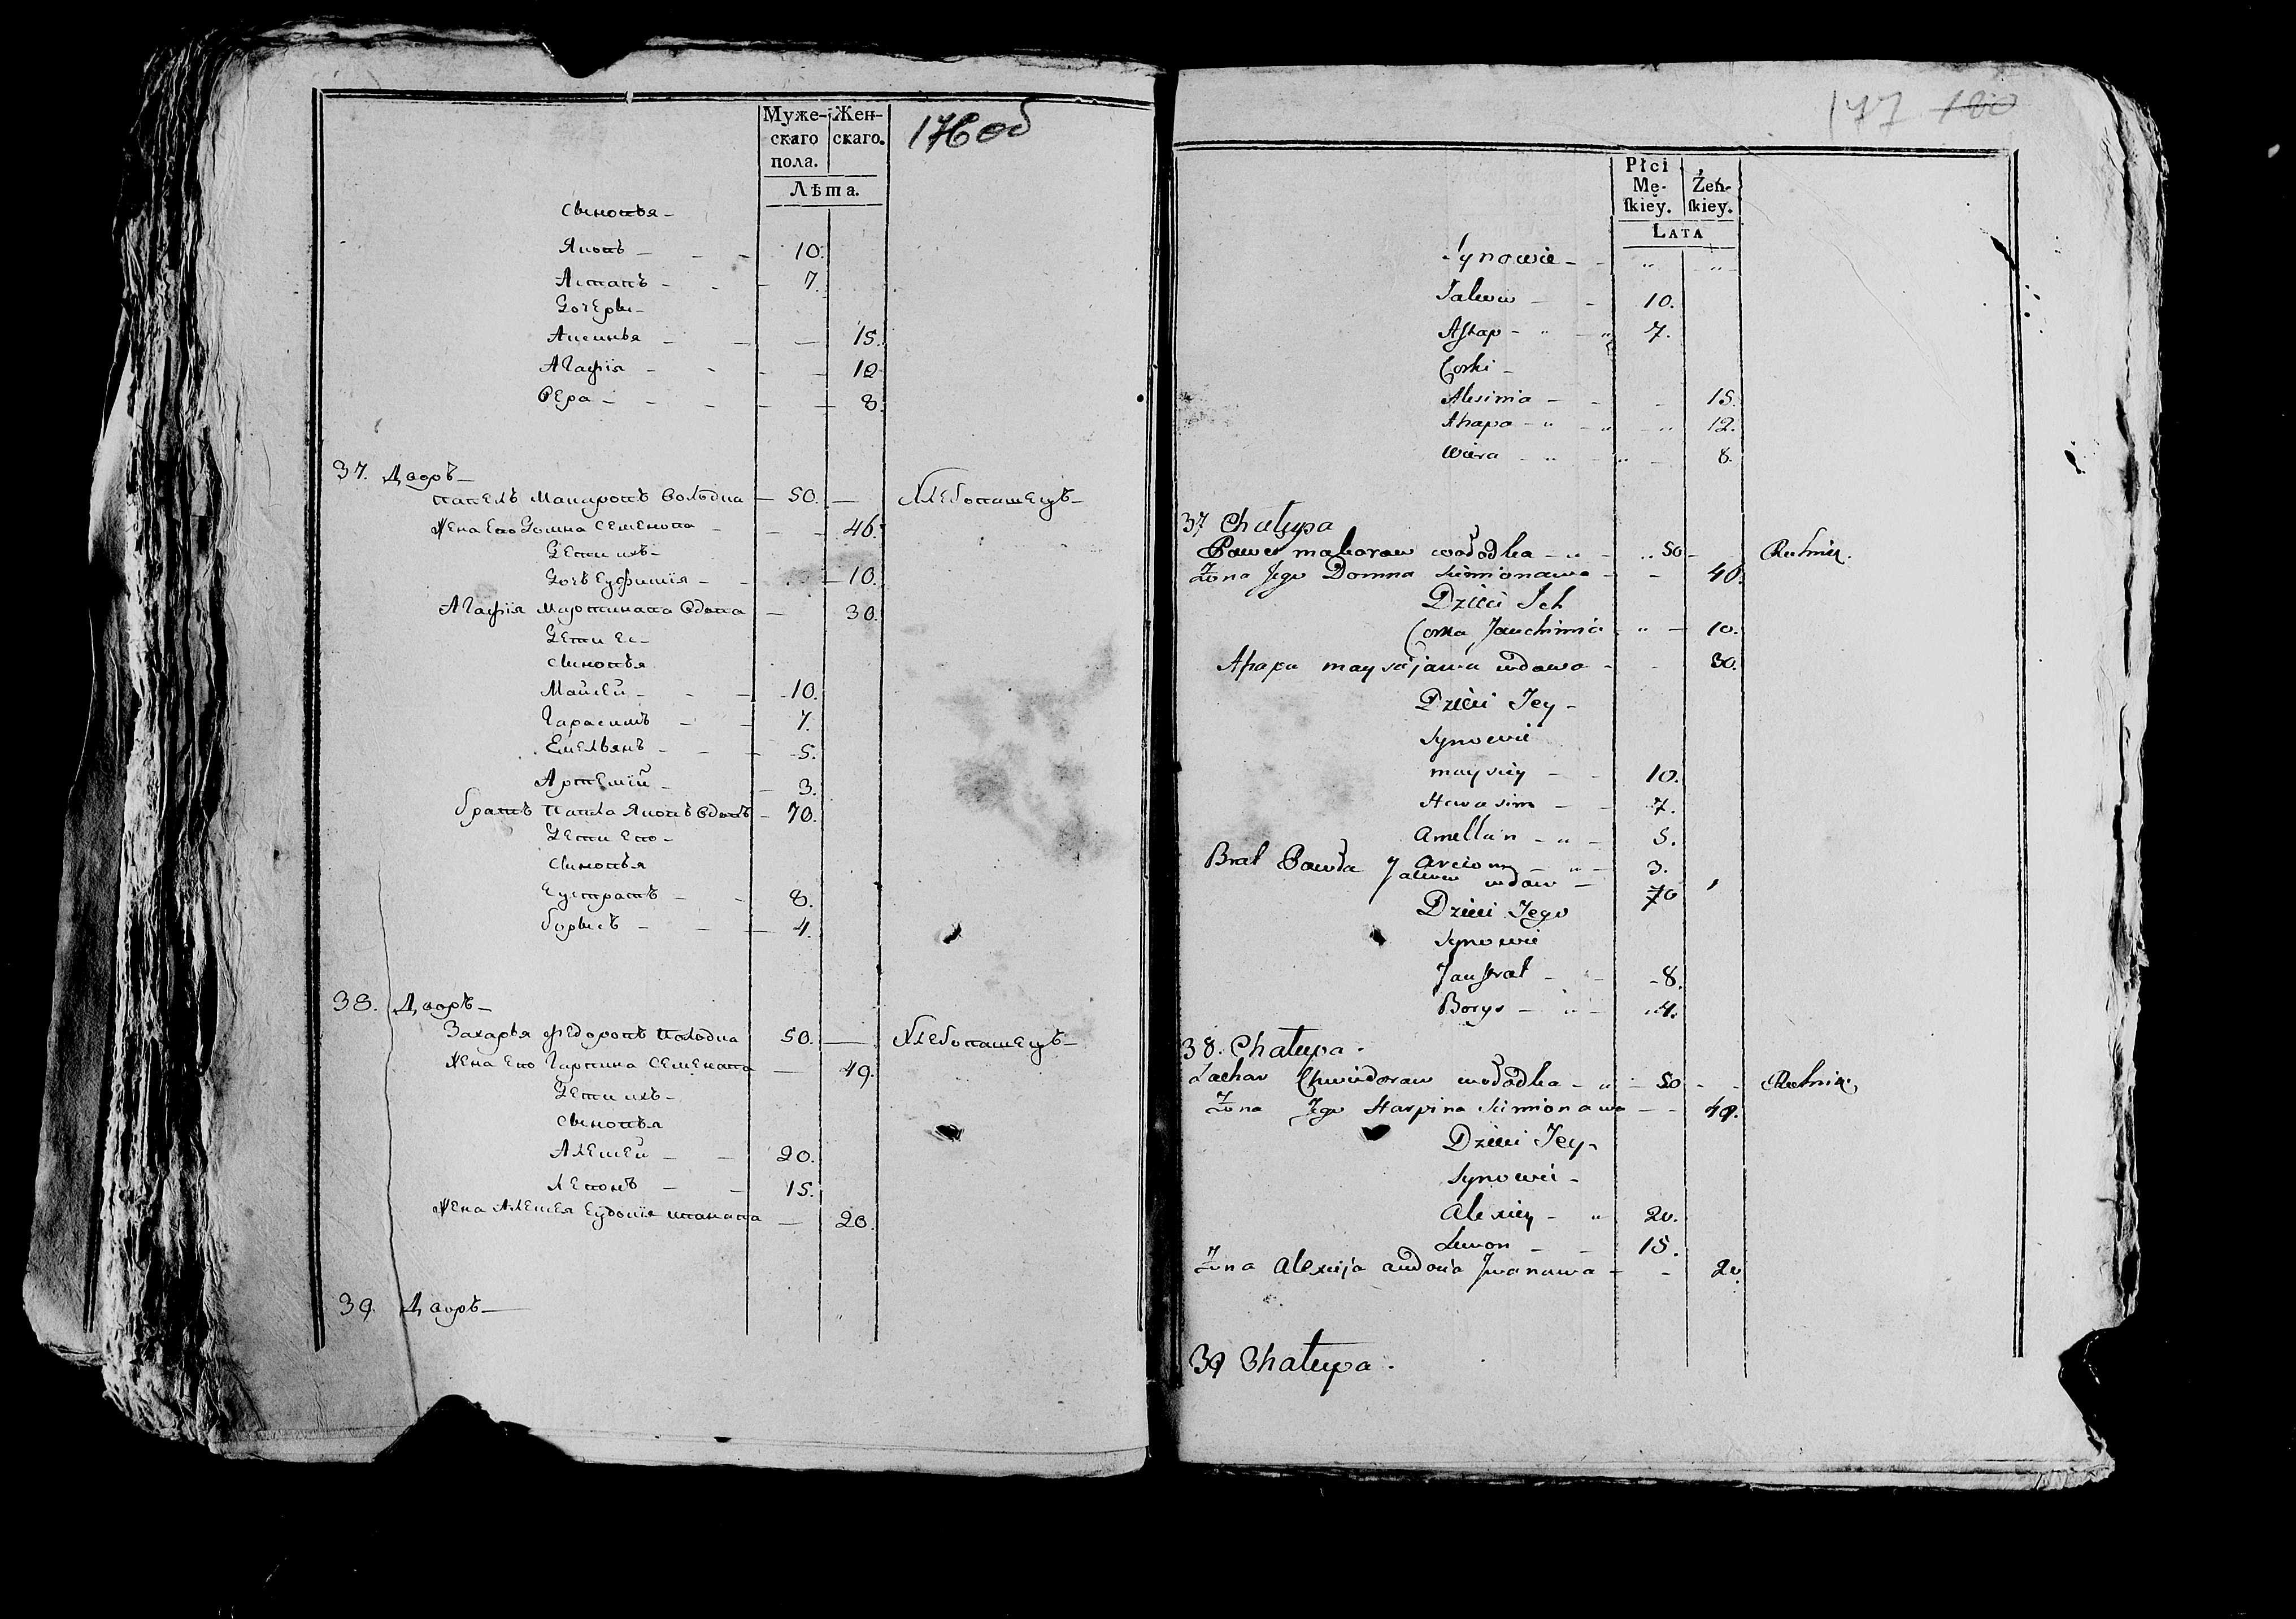 Муже-
скаго
пола.
Жен-
скаго.
176 об
Лѣта.
сыновья —
Яковъ — — — 10.
Астапъ — — — 7.
Дочери —
Аксинья — — — 15.
Агафія — — — 12
Вера — — — 8.
37. Дворъ —
Павелъ Макаровъ Володка — 50. — Хлебопашецъ —
Жена Его Домна Семенова — — 46.
Дети ихъ —
Дочь Еуфимія — — 10.
Агафія Вдова — 30.
Дети Ее —
сыновья
Майсей — — — 10.
Гарасимъ — — 7.
Емельянъ — — — 5.
Артемій — — 3.
братъ Павла Яковъ Вдовъ — 70.
Дети Его —
сыновья
Еустратъ — — 8.
борысъ — — — 4.
38. Дворъ —
Захарья Федоровъ Володка 50. — Хлебопашецъ —
Жена Его Гарпина Семенова — 49.
Дети ихъ —
сыновья
Алексей — — 20.
Левонъ — — 15.
Жена Алексея Еудокія Иванова — 20.
39. Дворъ —
177 180
Płci
Mę-
ſkiey.
Żeń-
ſkiey.
LATA
Synowie — „ „
Jakow — — 10.
Astap — „ — „ 7.
Corki —
Alesinia — — — 15.
Ahapa — „ — „ — „ 12.
Wiera — „ — „ — 8.
37 Chałupa
Paweł makaraw wołodka — „ — „ 50 — Rolnik.
Żona Jego Domna Simionawa — — 40.
Dzieci Ich
Corka Jauchimia — „ — 10.
Ahapa maysiejawa wdowa — — 30.
Dzieci Jey —
Synowie
maysiey — — 10.
Harasim — — 7.
Amellan — „ — 5.
Arciom — „ — 3.
Brat Pawła Jakow wdow — 70
Dzieci Jego
Synowie
Jaustrat — „ — 8.
Borys — „ — 4.
38. Chałupa.
Zachar Chwiedoraw wołodka — „ — 50 — — Rolnik.
Żona Jego Harpina Simionawa — — 49.
Dzieci Jey —
Synowie —
Alexiey — „ 20.
Lewon — — 15.
Żona Alexieja audocia Jwanawa — — 20
39 Chałupa.